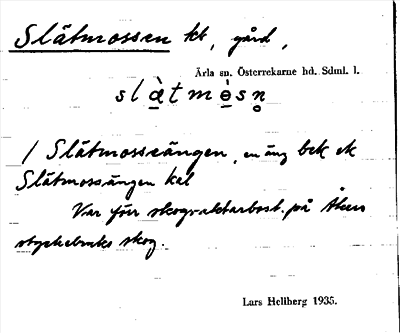 Slätmossen kt, gård,
Ärla sn. Österrekarne hd. Sdml. l.
slàtmösn̥
/ Slätmosseängen, en äng bek ek
Slätmossängen kal
Var förr skogvaktarbost. på Åkers
styckebruks skog.
Lars Hellberg 1935.